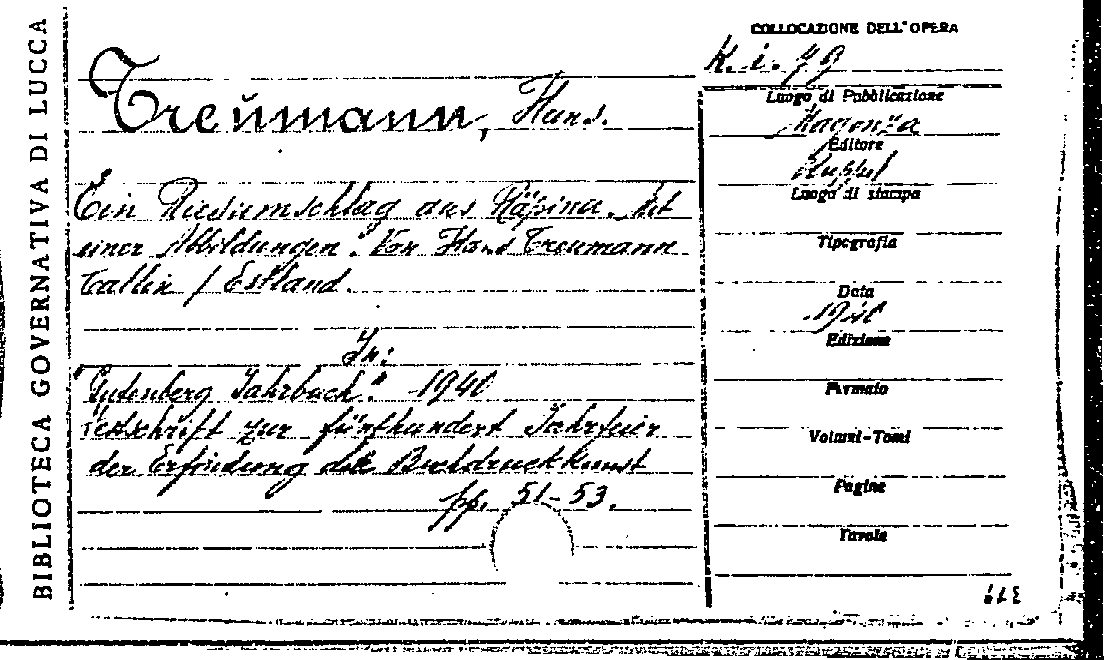 BIBLIOTECA GOVERNATIVA DI LUCCA
Treŭmann, Hans.
Ein Riesumschlag aus Räpina. Mit
einer Abbildungen. Von Hans Treumann
Tallin / Estland.
In:
"Gutenberg Jahrbuch". 1940
Festschrift zur fünfhundert Jahrfeier
der Erfindung der Buchdruckkunst
pp. 51-53.
COLLOCAZIONE DELL'OPERA
K. i. 79
Luogo di Pubblicazione
Magonza
Editore
Luogo di stampa
Tipografia
Data
1940
Edizione
Formato
Volumi-Tomi
Pagine
Tavole